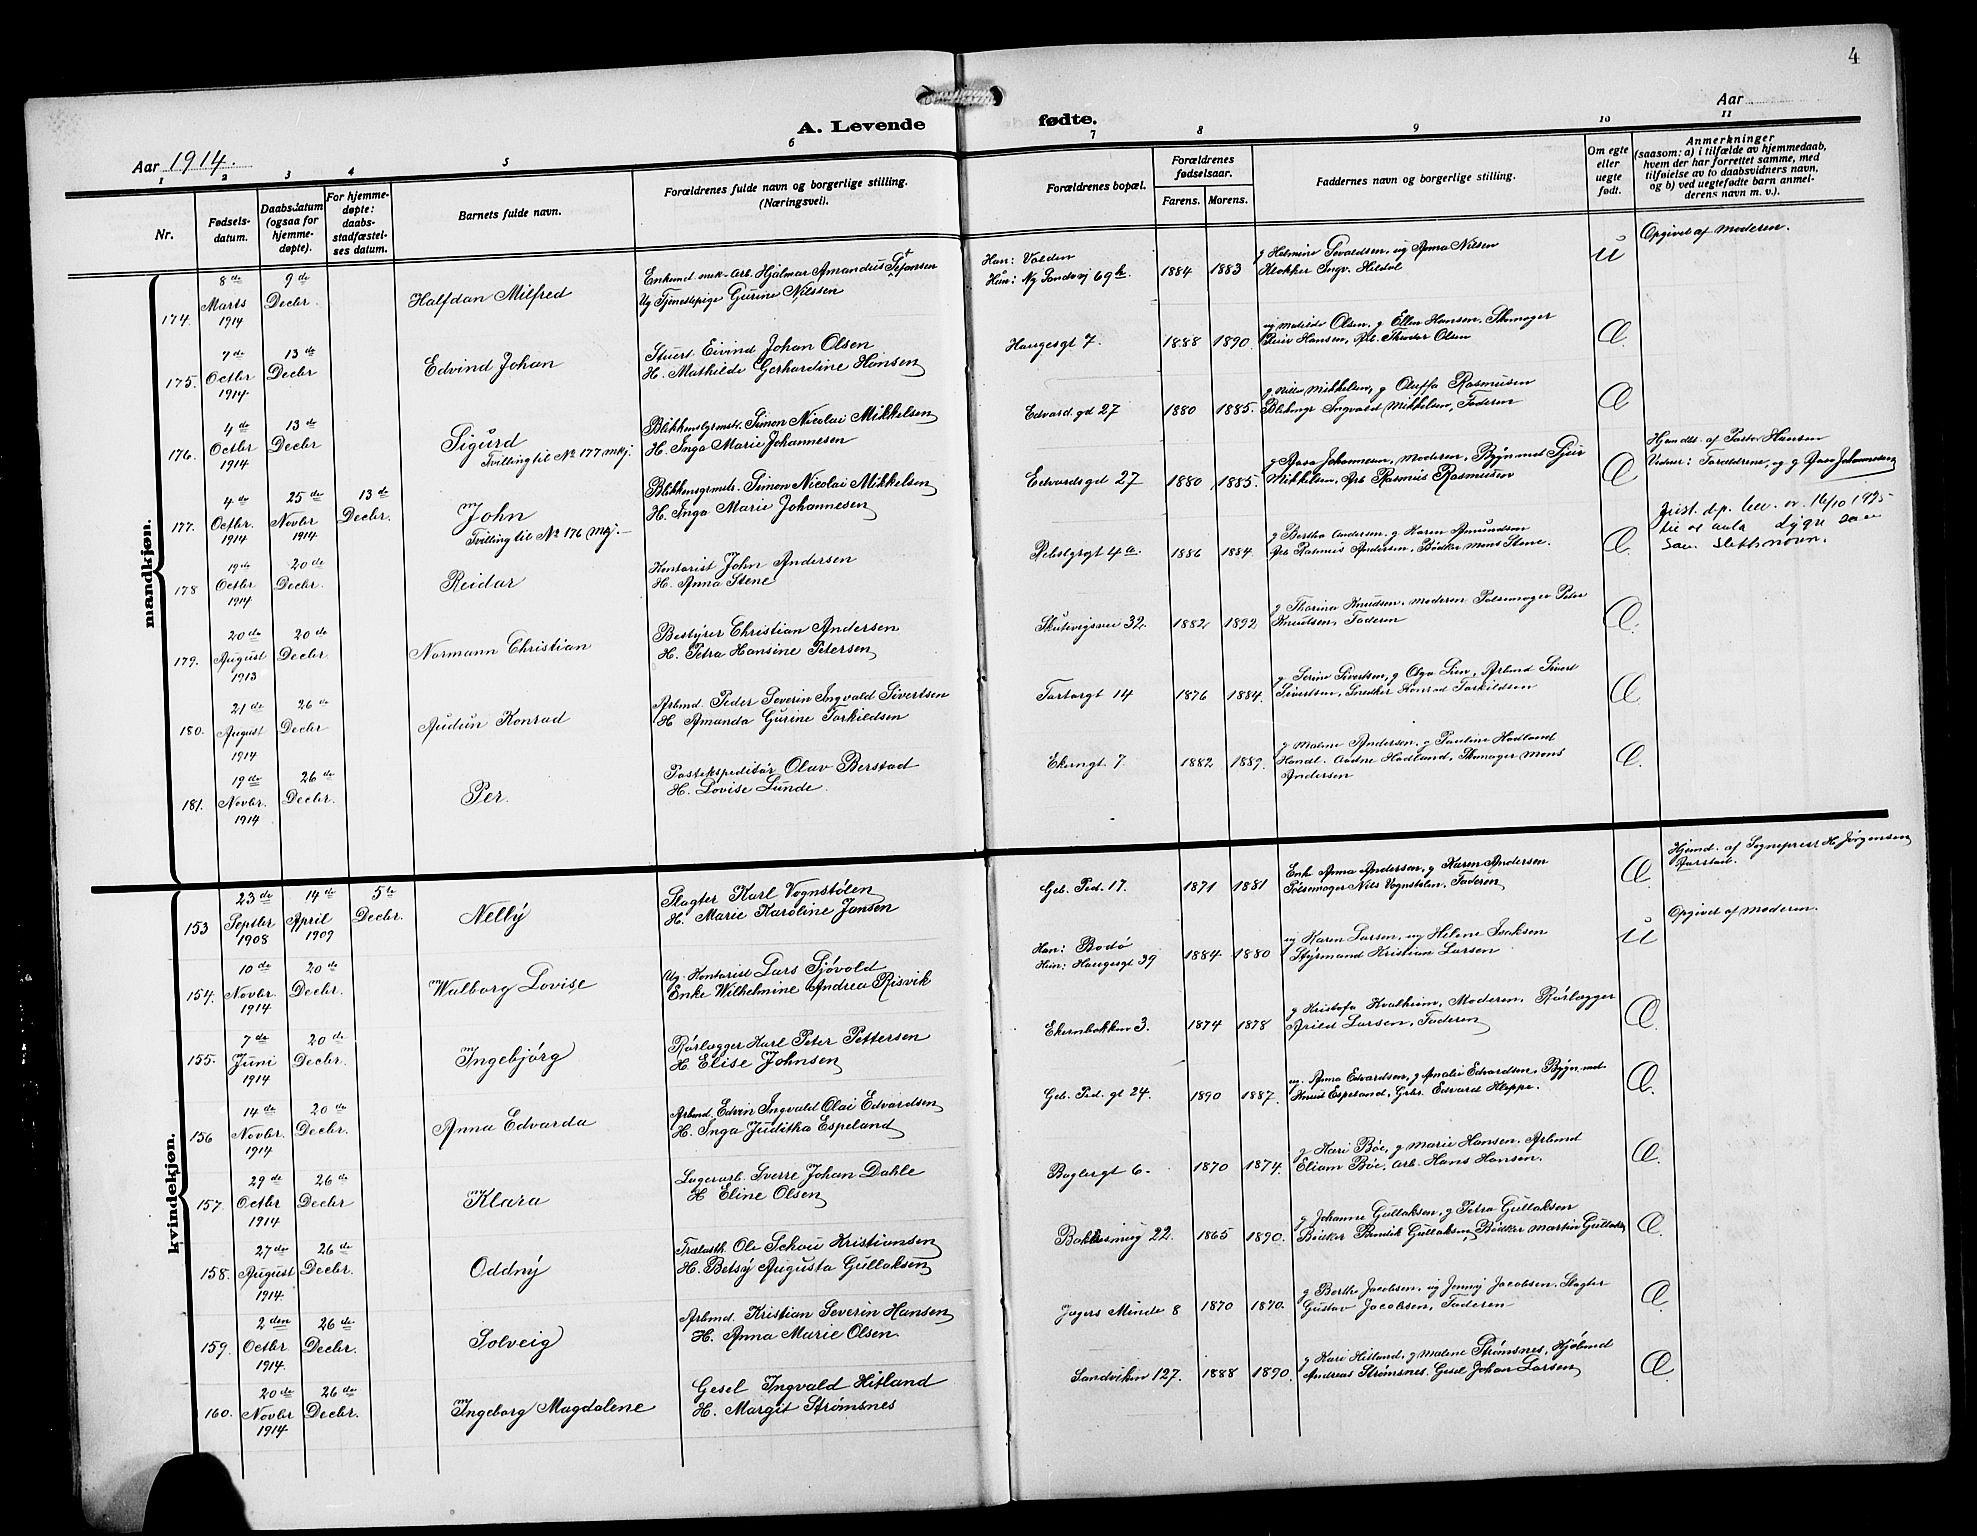 4
A. Levende fødte.
Aar 1914.
Aar
1 2 3 4 5 6 7 8 9 10 11
Nr.
Fødsels-
datum.
Daabsdatum
(ogsaa for
hjemme-
døpte).
For hjemme-
døpte:
daabs-
stadfæstel-
ses datum.
Barnets fulde navn.
Forældrenes fulde navn og borgerlige stilling.
(Næringsvei).
Forældrenes bopæl.
Forældrenes
fødselsaar.
Farens. Morens.
Faddernes navn og borgerlige stilling.
Om egte
eller
uegte
født.
Anmerkninger
(saasom: a) i tilfælde av hjemmedaab,
hvem der har forrettet samme, med
tilføielse av to daabsvidners navn,
og b) ved uegtefødte barn anmel-
derens navn m. v.).
mandkjøn.
174. 8de Marts 1914 9de Decbr. Halfdan Milfred
Enkemd mek. arb. Hjalmar Amandus Tefansen
Ug Tjenestepige Gurine Nilssen
Han: Volden
Hun: Ny Sandvij 69 b. 1884 1883
g Halmine Sevaldsen, ug Anna Nilsen
Klokker Ingv. Heldal
U
Opgivet af Moderen.
175. 7de Octbr 1914 13de Decbr Edvind Johan
Stuert Eivind Johan Olsen
H. Mathilde Gerhardine Hansen
Haugesgt 7. 1888 1890
ug Matilde Olsen, g Ellen Hansen, Skomager
Peder Hansen, Arb. Theodor Olsen
Æ
176. 4de Octbr 1914 13de Decbr Sigurd
Tvilling til No 177 mkj.
Blikkenslgrmstr. Simon Nicolai Mikkelsen
H. Inga Marie Johannesen
Edvard. gd 27 1880 1885.
g Nille Mikkelsen, g Oluffa Rasmusen
Blikslagr Ingvald Mikkelsen, Faderen
Æ
177. 4de Octbr. 1914 25de Novbr 1914 13de Decbr. John
Tvilling til No 176 mkj.
Blikkensgrmstr. Simon Nicolai Mikkelsen
H. Inga Marie Johannesen
Edvardsgd 27 1880 1885.
g Aasa Johannesen, Moderen, Bygn.md Sjur
Mikkelsen, Arb Rasmus Rasmussen
Æ
Hjmdb. af Pastor Hansen
Vidner: Forældrene, ug g Aasa Johannesen
178 19de Octbr 1914 20de Decbr. Reidar
Kontorist John Andersen
H. Anna Stene
4 a. 1886 1884
g Bertha Andersen, g Karen Amundsen
Arb Rasmus Andersen, Bødker Mons Stene.
Æ
16/10 1925
179. 20de August 1913 20de Decbr. Normann Christian
Bestyrer Christian Andersen
H. Petra Hansine Petersen
Skutevigsvei 32. 1882 1892
g Tharina Knudsen, Moderen Pølsemager Peter
Knudsen, Faderen
Æ.
180. 21de August 1914 26de Decbr Audun Konrad
Arbmd. Peder Severin Ingvald Sivertsen
H. Amanda Gurine Torkildsen
Tartargt 14 1876 1884.
g Serine Sivertsen, g Olga Lien, Arbmd Sivert
Sivertsen, Snedker Konrad Torkildsen
Æ
181. 19de Novbr. 1914 26de Decbr. Per.
Postekspeditør Olav Berstad
H. Lovise Lunde.
Ekerngt 7 1882 1889.
g Malene Andersen, g Pauline Hadland
Handl. Andre Hadland, Skomager Mons
Andersen
Æ.
kvindekjøn.
153 23de Septbr 1908 14de April 1909 5te Decbr. Nelly
Slagter Karl Vognstølen
H. Marie Karoline Jansen
Geb. Ped. 17. 1871 1881
Enke Anna Andersen, g Karen Andersen
Pølsemager Nils Vognstølen, Faderen
Æ.
Hjemd. af Sogneprest H. Jørgensen
Aarstad.
154. 10de Novbr. 1914 20de Decbr. Walborg Lovise
Ug. Kontorist Lars Sjøvold
Enke Wilhelmine Andrea Risvik
Han: Bodø
Hun: Haugesgt 39 1884 1880
ug Karen Larsen, ug Helene Isaksen
Styrmand Kristian Larsen
U
Opgivet af Moderen.
155. 7de Juni 1914 20de Decbr. Ingebjørg
Rørlægger Karl Peter Pettersen
H. Elise Johnsen
Ekernbakken 3. 1874 1878
g Kristofa Kvalheim, Moderen, Rørlægger
Arild Larsen, Faderen
Æ.
156 14de Novbr. 1914 20de Decbr. Anna Edvarda
Arbmd. Edvin Ingvald Olai Edvardsen
H. Inga Juditha Espeland
Geb. Ped. gt 24. 1890 1887.
ug. Anna Edvardsen, g Amalie Edvardsen, Bygn.md.
Knud Espeland, Grbr. Edvard Kleppe.
Æ.
157. 29de Octbr 1914 26de Decbr Klara
Lagerarb. Sverre Johan Dahle
H Eline Olsen
Baglergt 6. 1870 1874.
g Kari Bøe, g Marie Hansen. Arbmd
Eliam Bøe, Arb. Hans Hansen.
Æ.
158. 27de August 1914. 26de Decbr. Oddny
Trælasth. Ole Schou Kristiansen
H. Betsy Augusta Gullaksen
22. 1865 1890.
g Johanne Gullaksen, g Petra Gullaksen
Bødker Bendik Gullaksen, Bødker Martin Gullaks
Æ.
159. 2den Octbr. 1914. 26de Decbr. Solveig
Arbmd. Kristian Severin Hansen
H. Anna Marie Olsen.
Jægers Minde 8 1870 1870.
g Berthe Jacobsen, ug Jenny Jacobsen, Slagter
Gustav Jacobsen, Faderen
Æ.
160. 20de Novbr 1914 26de Decbr. Ingeborg Magdalene
Gesel Ingvald Hitland
H. Margit Strømsnes
Sandviken 127. 1888 1890.
g Kari Hitland, g Malene Strømsnes, Kjøbmd
Andreas Strømsnes. Gesel Johan Larsen
Æ